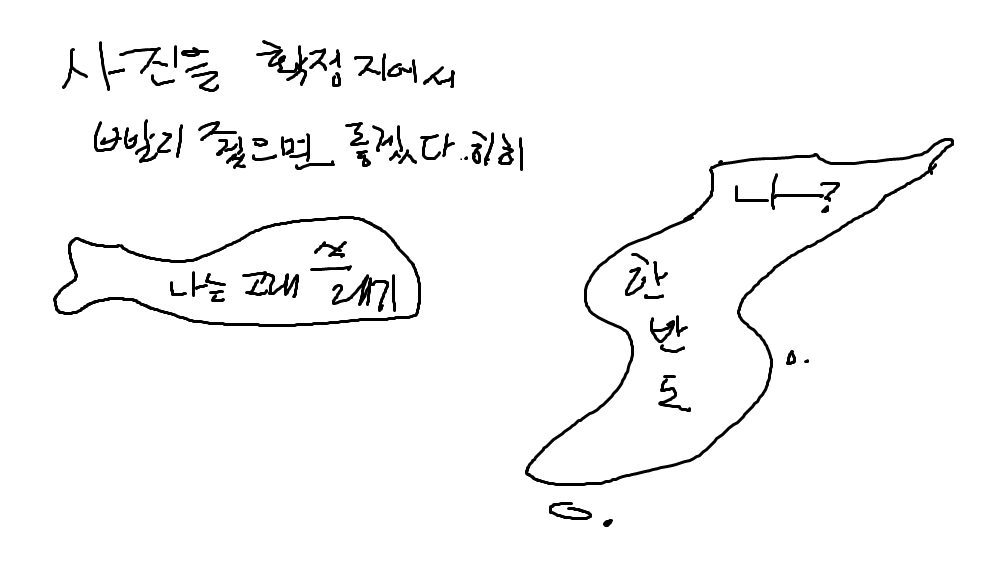 사진을 확정지에서
빠발리 찔으면 좋겠다..히히
나는 고래 쓰
래기
나?
한
반
도